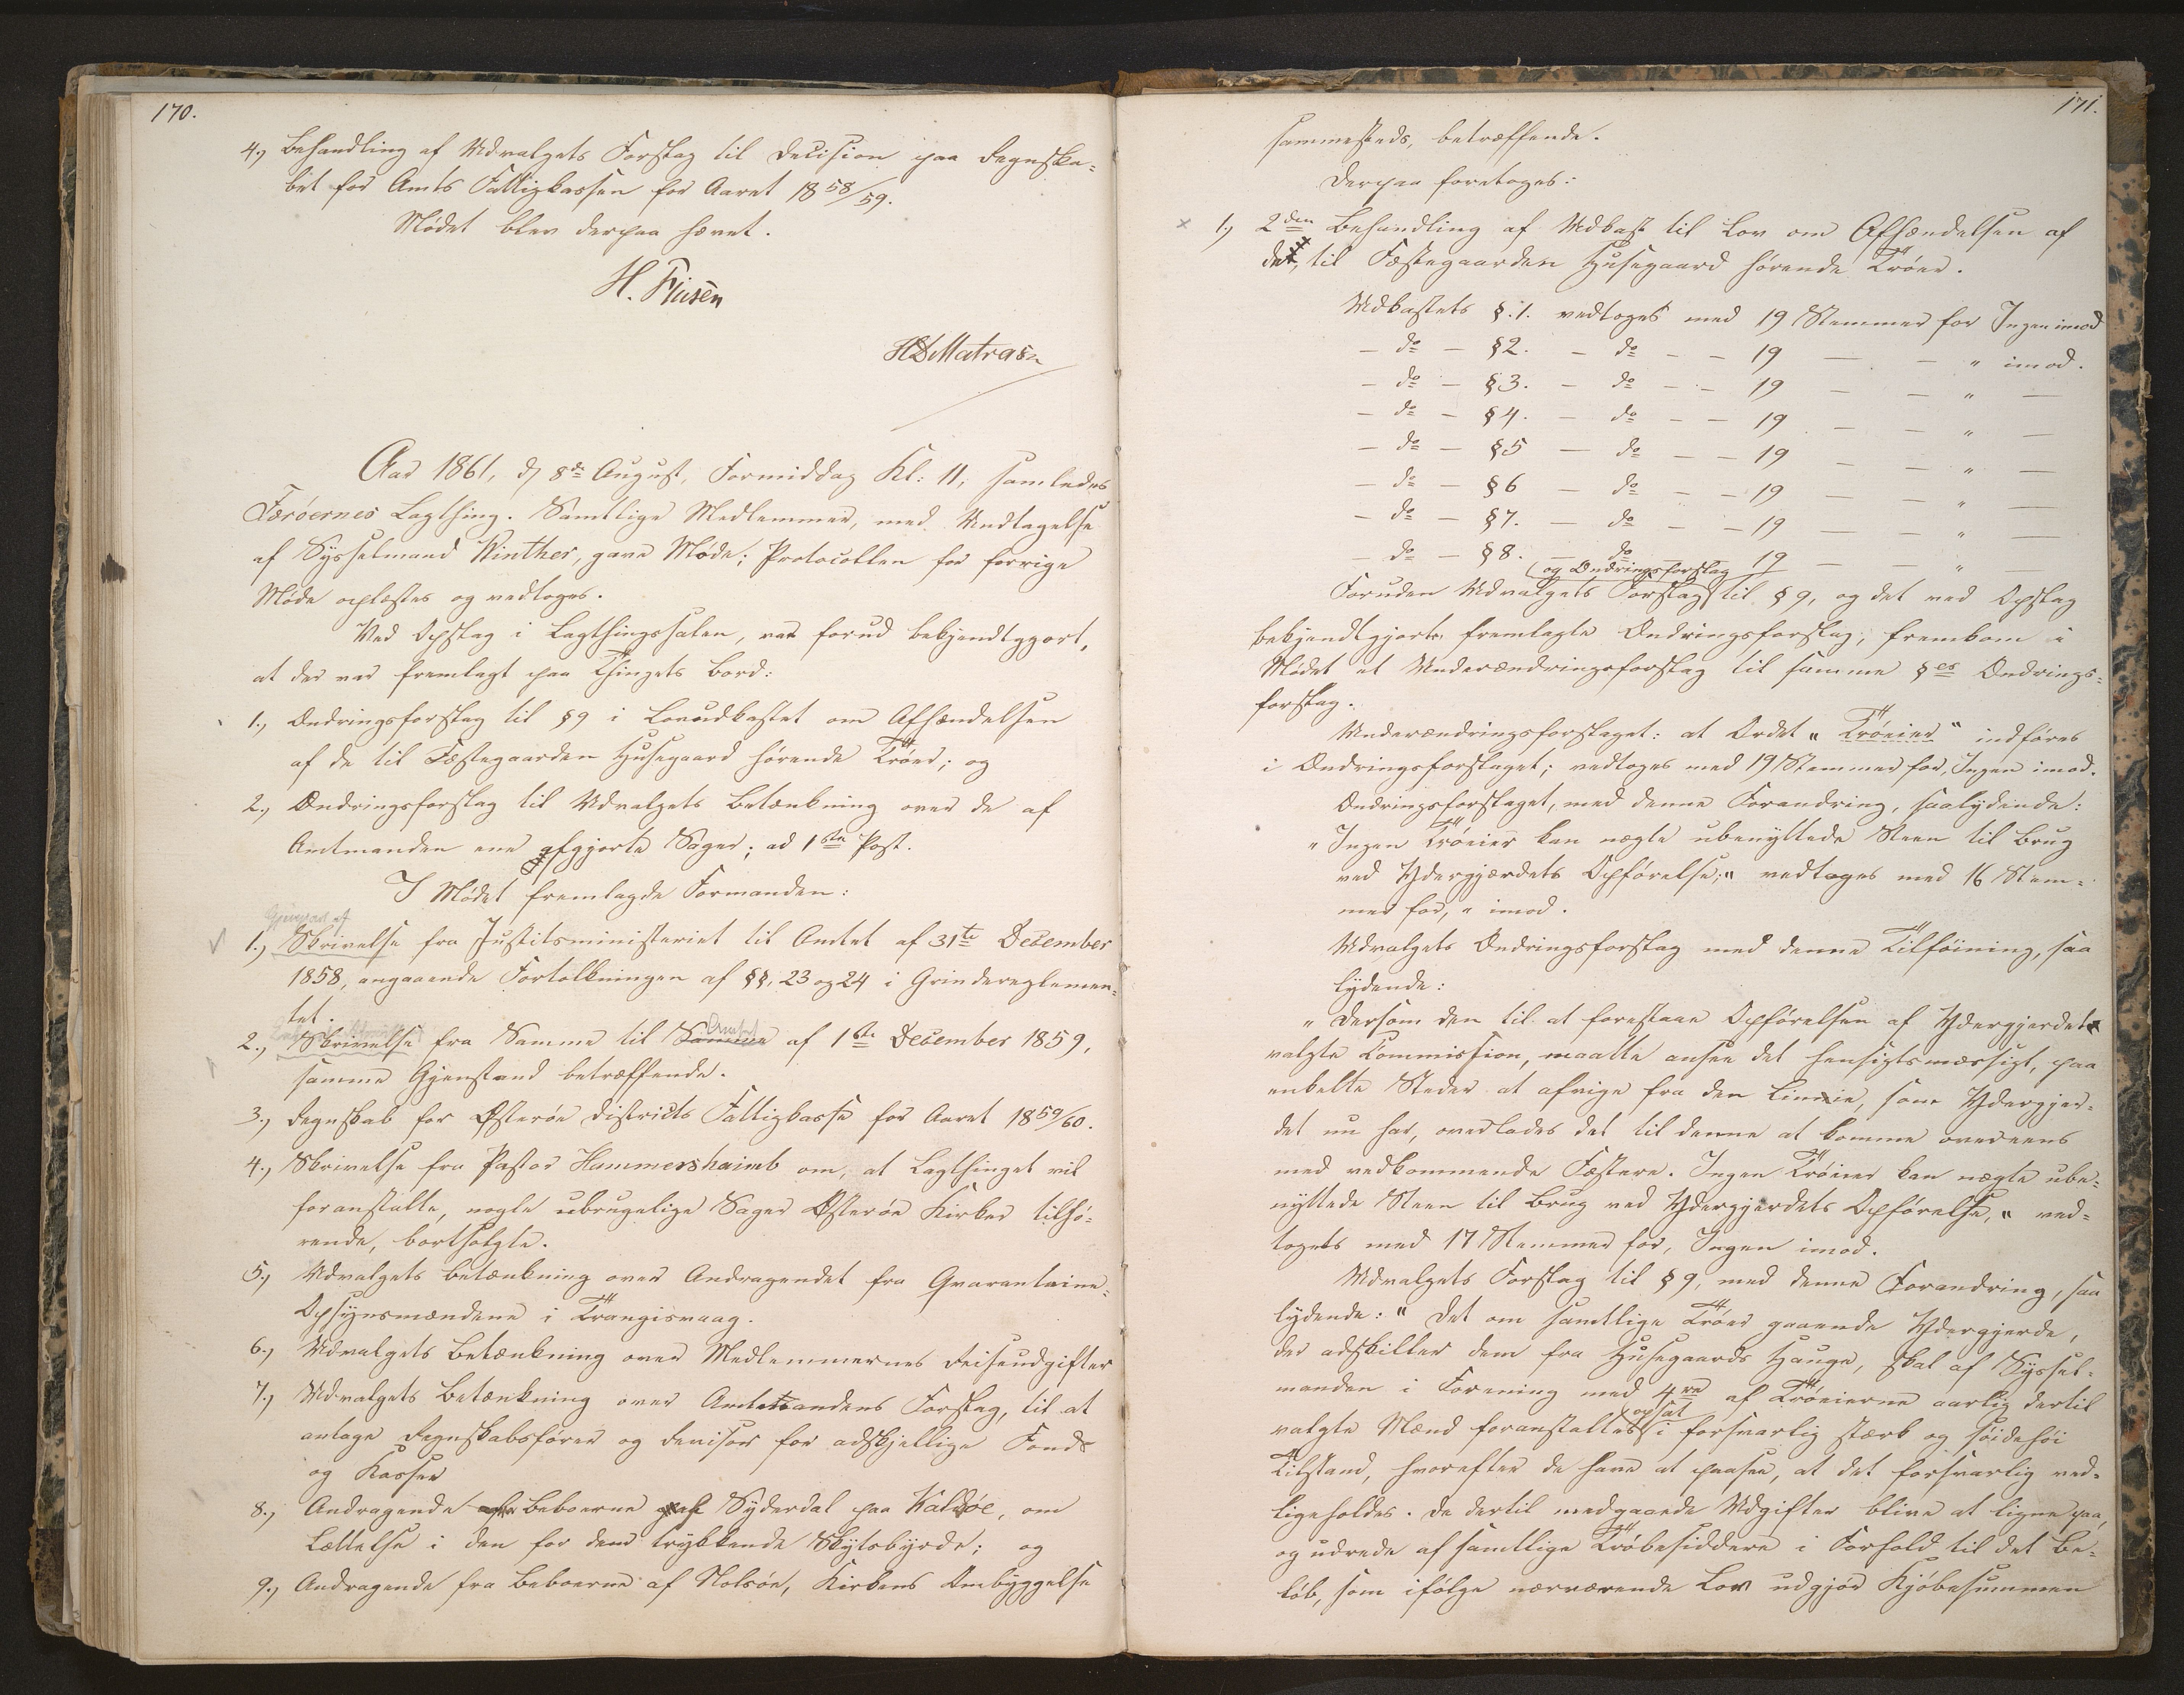 170.
4.) Behandling af Udvalgets Forslag til Decision paa Regnska-
bet for Amts Fattigkassen for Aaret 1858/59.
Mødet blev derpaa hævet.
H. Müller
HDMatras
Aar 1861, d. 8de August, Formiddag Kl. 11, samledes
Færöernes Lagthing. Samtlige Medlemmer, med Undtagelse
af Sysselmand Winther, gave Møde; Protocollen for forrige
Møde oplæstes og vedtoges.
Ved Opslag i Lagthingssalen, var forud bekjendtgjort,
at der var fremlagt paa Thingets Bord:
1., Ændringsforslag til §9 i Lovudkastet om Afhændelsen
af de til Fæstegaarden Husegaard hørende Trøer; og
2., Ændringsforslag til Udvalgets Betænkning over de af
Amtmanden ene afgjorte Sager; ad 1ste Post.
I Mødet fremlagde Formanden:
Gjenpart af
1.) Skrivelse fra Justitsministeriet til Amtet af 31te December
1858, angaaende Fortolkningen af §§. 23 og 24 i Grindereglemen-
tet.
Amtet
2., Skrivelse fra Samme til Samme af 1ste December 1859,
samme Gjenstand betræffende.
3.) Regnskab for Østerøe Districts Fattigkasse for Aaret 1859/60.
4., Skrivelse fra Pastor Hammershaimb om, at Lagthinget vil
foranstalte, nogle ubrugelige Sager Østerøe Kirker tilhø-
rende, bortsolgte.
5.) Udvalgets Betænkning over Andragendet fra Qvarantaine-
Opsynsmændene i Trangisvaag.
6.) Udvalgets Betænkning over Medlemmernes Reiseudgifter
7.) Udvalgets Betænkning over Amtmandens Forslag, til at
antage Regnskabsfører og Revisor for adskjellige Fonds
og Kasser
8.) Andragende fra Beboerne af Syderdal paa Kalsøe, om
Lettelse i den for dem trykkende Skytsbyrde; og
9.) Andragende fra Beboerne af Nolsøe, Kirkens Ombyggelse
171.
sammesteds, betræffende.
Derpaa foretoges:
× 1.) 2den Behandling af Udkast til Lov om Afhændelsen af
de, til Fæstegaarden Husegaard hørende Trøer.
Udkastets §.1. vedtoges med 19 Stemmer for Ingen imod
- do - §2. - do - - 19 — - " imod.
- do - §3. - do - - 19 — - " —
- do - §4. - do - - 19 — - " —
- do - §5 - do - - 19 — - " —
- do - §6 - do - - 19 — - " —
- do - §7. - do - - 19 — - " —
- do - §8. - do - - 19 — - " —
og Ændringsforslag
Foruden Udvalgets Forslag til §9, og det ved Opslag
bekjendtgjorte fremlagte Ændringsforslag, fremkom i
Mødet et Underændringsforslag til samme §es Ændrings-
forslag.
Underændringsforslaget: at Ordet "Trøeier" indføres
i Ændringsforslaget; vedtoges med 19 Stemmer for, Ingen imod.
Ændringsforslaget, med denne Forandring, saalydende:
"Ingen Trøeier kan nægte ubenyttede Steen til Brug
ved Ydergjærdets Opførelse;" vedtoges med 16 Stem-
mer for, " imod.
Udvalgets Ændringsforslag med denne Tilføining, saa
lydende:
"Dersom den til at forestaae Opførelsen af Ydergjerdet
valgte Commission, maatte ansee det hensigtsmæssigt, paa
enkelte Steder at afvige fra den Linie, som Ydergjer-
det nu har, overlades det til denne at komme overeens
med vedkommende Fæstere. Ingen Trøeier kan nægte ube-
nyttede Steen til Brug ved Ydergjerdets Opførelse," ved-
toges med 17 Stemmer for, Ingen imod.
Udvalgets Forslag til §9, med denne Forandring, saa
lydende: "Det om samtlige Trøer gaaende Ydergjerde,
der adskiller dem fra Husegaards Hauge, skal af Syssel-
manden i Forening med 4re af Trøeierne aarlig dertil
opsat
valgte Mænd foranstaltes i forsvarlig stærk og søidehøi
Tilstand, hvorefter de have at paasee, at det forsvarlig ved-
ligeholdes. De dertil medgaaede Udgifter blive at ligne paa,
og udrede af samtlige Trøbesiddere i Forhold til det Be-
løb, som ifølge nærværende Lov udgjør Kjøbesummen